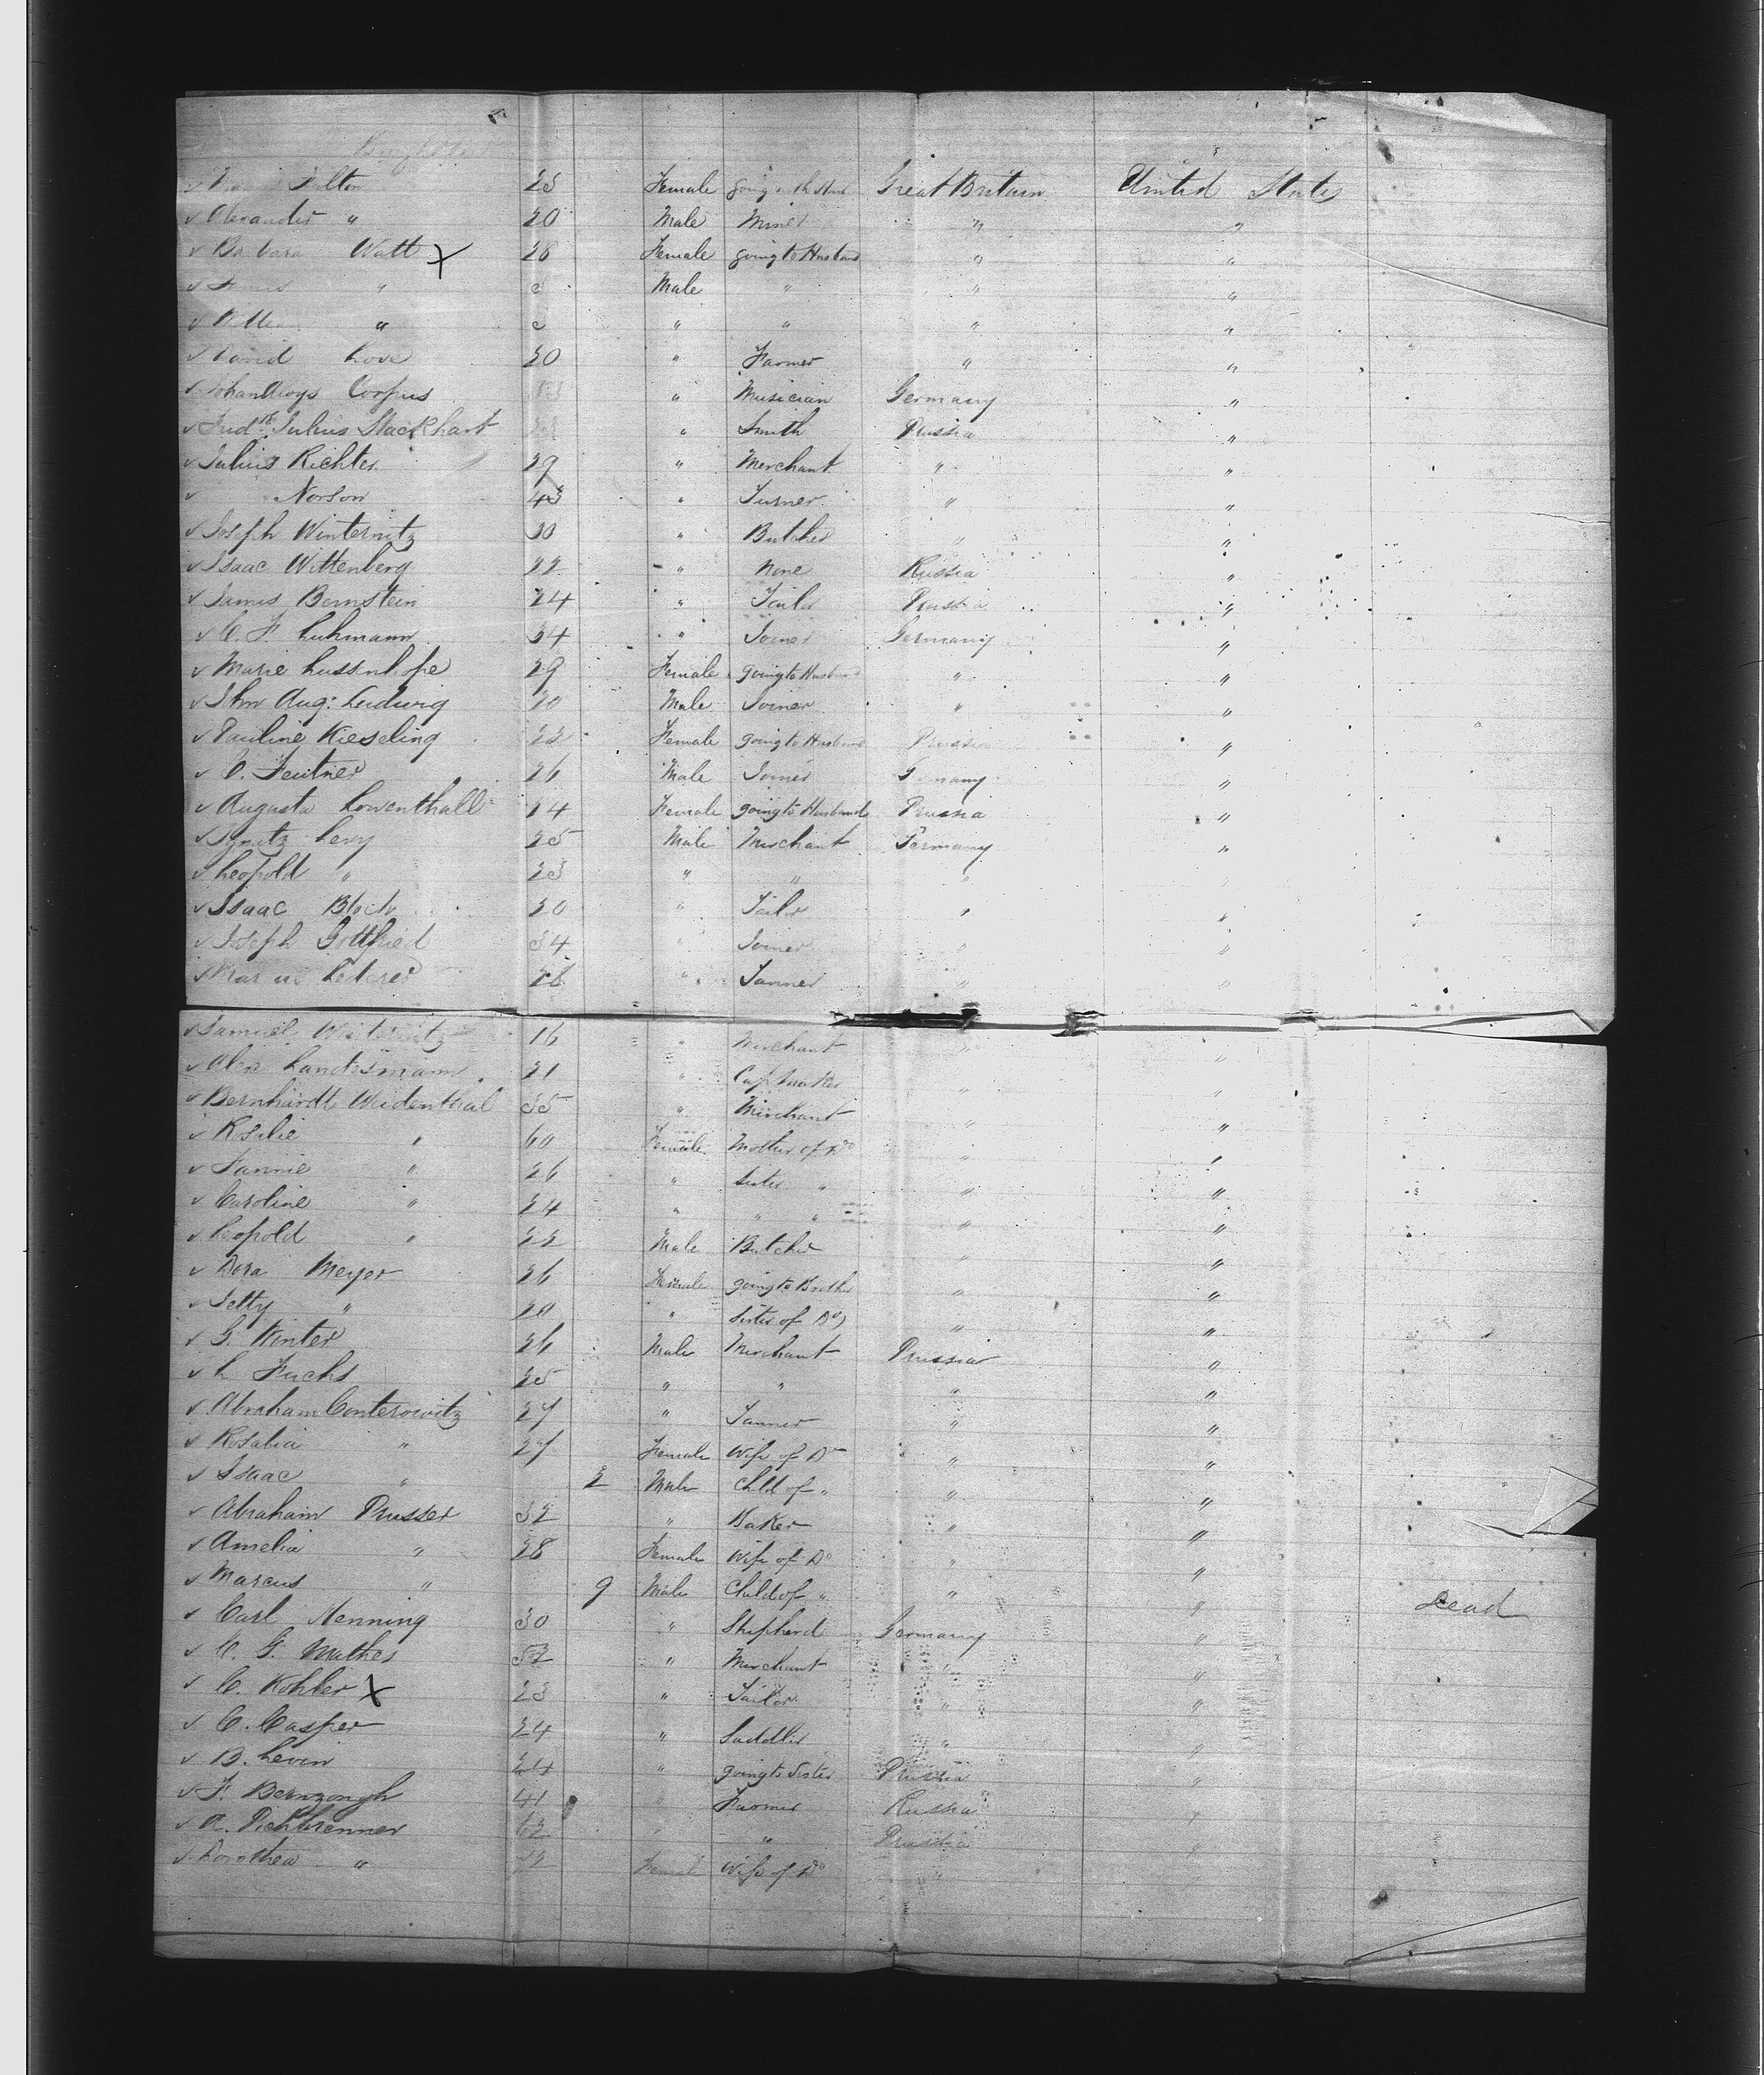 Fulton 23 Female Great Britain United States
✓ Alexander " 20 Male Miner " "
✓ Barbara Watt X 28 Female going to Husband " "
✓ " Male " " "
✓ " " " " "
✓ David Love 20 " Farmer " "
✓ Corpus " Musician Germany "
✓ Julius Stackhart " Smith Prussia "
✓ Julius Richter 29 " Merchant " "
✓ Norson 43 " Turner " "
✓ Joseph Winternitz 30 " Butcher " "
✓ Isaac Wittenberg 22 " None Russia "
✓ James Bernstein 24 " Tailor Prussia "
✓ C. F. Luhmann 34 " Joiner Germany "
✓ Marie Lussenhope 29 Female going to Husband " "
✓ John Aug: Ludwig 20 Male Joiner " "
✓ Pauline Kieseling 22 Female going to Husband Prussia "
✓ C. Feutner 26 Male Joiner Germany "
✓ Augusta Lowenthall 24 Female going to Husband Prussia "
✓ Ignatz Levy 25 Male Merchant Germany "
✓ Leopold " 23 " " " "
✓ Isaac Bloch 20 " Tailor " "
✓ Joseph Gottfried 34 " Joiner " "
✓ Lederer 28 " Tanner " "
✓ Samuel 16 " Merchant " "
✓ Alex Landesmann 21 " Capmaker " "
✓ Bernhardt Weidenthal 35 " Merchant " "
✓ Rosalie " 60 Female Mother of Do " "
✓ Fannie " 26 " Sister " " "
✓ Caroline " 24 " " " " "
✓ Leopold " 22 Male Butcher " "
✓ Dora Meyer 26 Female going to Brother " "
✓ Jetty " 20 " Sister of Do " "
✓ G. Winter 26 Male Merchant Prussia "
✓ L Fuchs 25 " " " "
✓ Abraham Conterowitz 27 " Tanner " "
✓ Rosalia " 27 Female Wife of Do " "
✓ Isaac " 2 Male Child of " " "
✓ Abraham Prusser 32 " Baker " "
✓ Amelia " 28 Female Wife of Do " "
✓ Marcus " 9 Male Child of " " " Dead
✓ Carl Nenning 30 " Shepherd Germany "
✓ C. G. Mathes 52 " Merchant " "
✓ C. Kohler X 23 " Tailor " "
✓ C. Casper 24 " Saddler " "
✓ B. Levin 24 " going to Sister Prussia "
✓ F. Bernzongh 41 " Farmer Russia "
✓ A. Pichbrenner 62 " " Prussia "
✓ Dorothea " Female Wife of Do " "